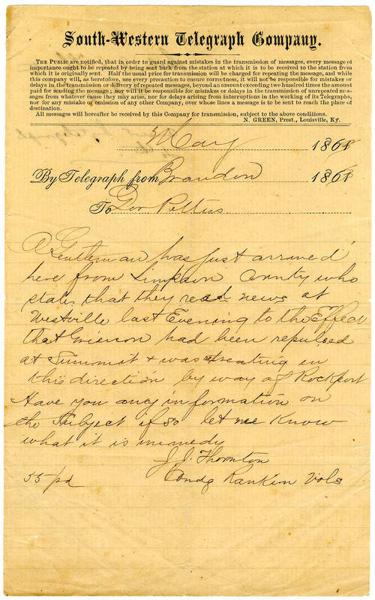 South-Western Telegraph Company.
THE PUBLIC are notified, that in order to guard against mistakes in the transmission of messages, every message of
importance ought to be repeated by being sent back from the station at which it is to be received to the station from
which it is originally sent. Half the usual price for transmission will be charged for repeating the message, and while
this company will, as heretofore, use every precaution to ensure correctness, it will not be responsible for mistakes or
delays in the transmission or delivery of repeated messages, beyond an amount exceeding two hundred times the amount
paid for sending the message; nor will it be responsible for mistakes or delays in the transmission of unrepeated mes-
sages from whatever cause they may arise, nor for delays arising from interruptions in the working of its Telegraphs,
nor for any mistake or omission of any other Company, over whose lines a message is to be sent to reach the place of
destination.
All messages will hereafter be received by this Company for transmission, subject to the above conditions.
N. GREEN, Prest., Louisville, Ky.
May 186
By Telegraph from Brandon 186
To Gov Pettus
A Gentleman has just arrived
here from Simpson County who
states that they read news at
Westville last Evening to the Effect
that Grierson had been repulsed
at Summit & was treating in
this direction by way of Rockport
Have you any information on
the Subject if so let me Know
what it is immedy
J.J. Thornton
Comdg Rankin Vols
55 pd